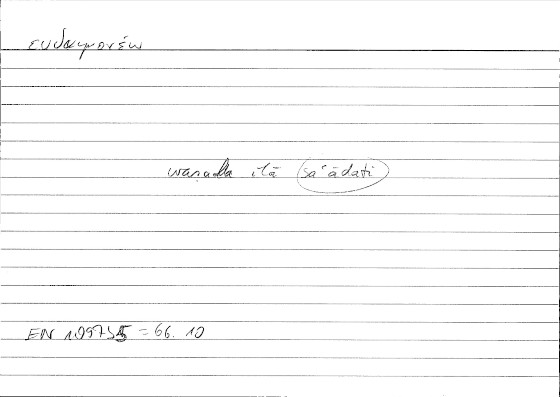 ευδαιμονέω
waṣala ilā saʿādati
EN 1097b5 = 66. 10